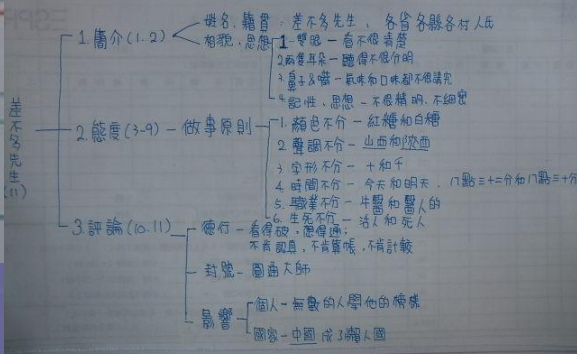 差不多先生(11)
1.簡介(1.2)
姓名、籍貫:差不多先生、各省各縣各村人氏
相貌、思想
1-雙眼-看不很清楚
2兩隻耳朵-聽得不很分明
3.鼻子&嘴-氣味和口味都不很講究
4.記性、思想-不很精明、不細密
2.態度(3-9)-做事原則
1.顏色不分-紅糖和白糖
2.聲調不分-山西和陝西
3.字形不分-十和千
4.時間不分-今天和明天、八點三十二分和八點三十分
5.職業不分-牛醫和醫人的
6.生死不分-活人和死人
3.評論(10.11)
德行-看得破,想得通;
不肯認真,不肯算帳,不肯計較
封號-圓通大師
影響
個人-無數的人學他的榜樣
國家-中國成了懶人國